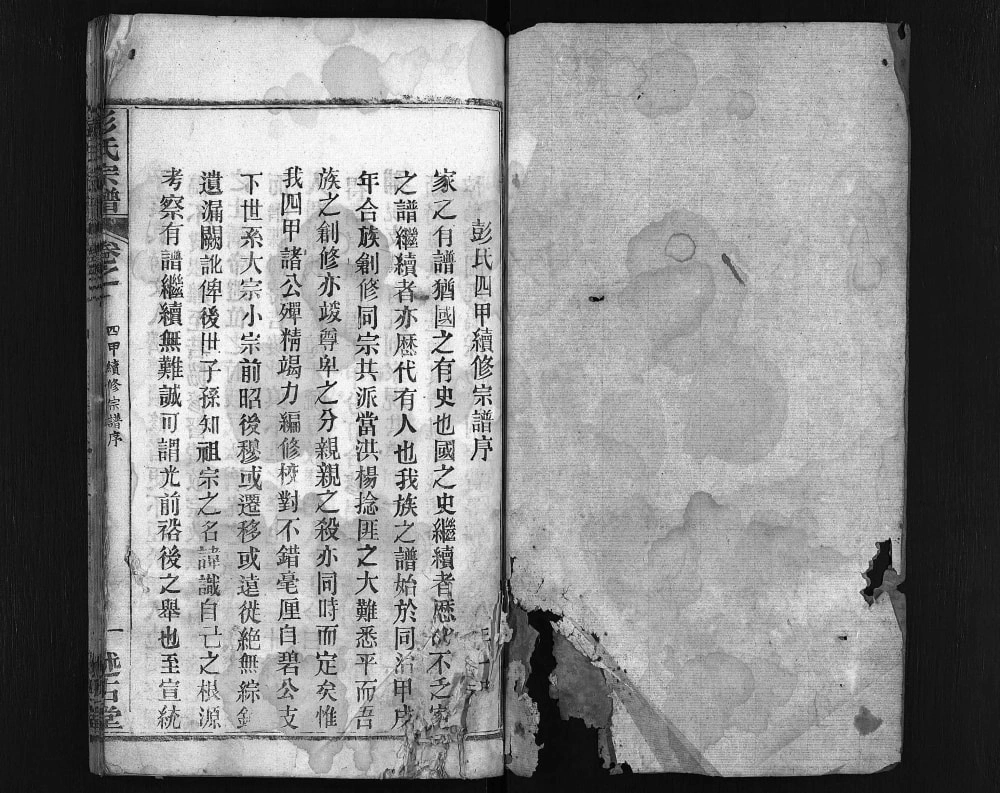 彭氏四甲續修宗譜序
家之有譜猶國之有史也國之史繼續者歷代不乏家
之譜繼續者亦歷代有人也我族之譜始於同治甲戌
年合族創修同宗共派當洪楊捻匪之大難悉平而吾
族之創修亦竣尊卑之分親親之殺亦同時而定矣惟
我四甲諸公殫精竭力編修校對不錯毫厘自碧公支
下世系大宗小宗前昭後穆或遷移或遠徙絶無綜錯
遺漏闕訛俾後世子孫知祖宗之名諱識自己之根源
考察有譜繼續無難誠可謂光前裕後之舉也至宣統
彭氏宗譜 卷之一 四甲續修宗譜序 一 述古堂